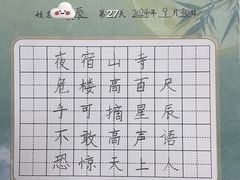 姓名 辰 第27天 2024年9月30日
夜宿山寺
危楼高百尺
手可摘星辰
不敢高声语
恐惊天上人